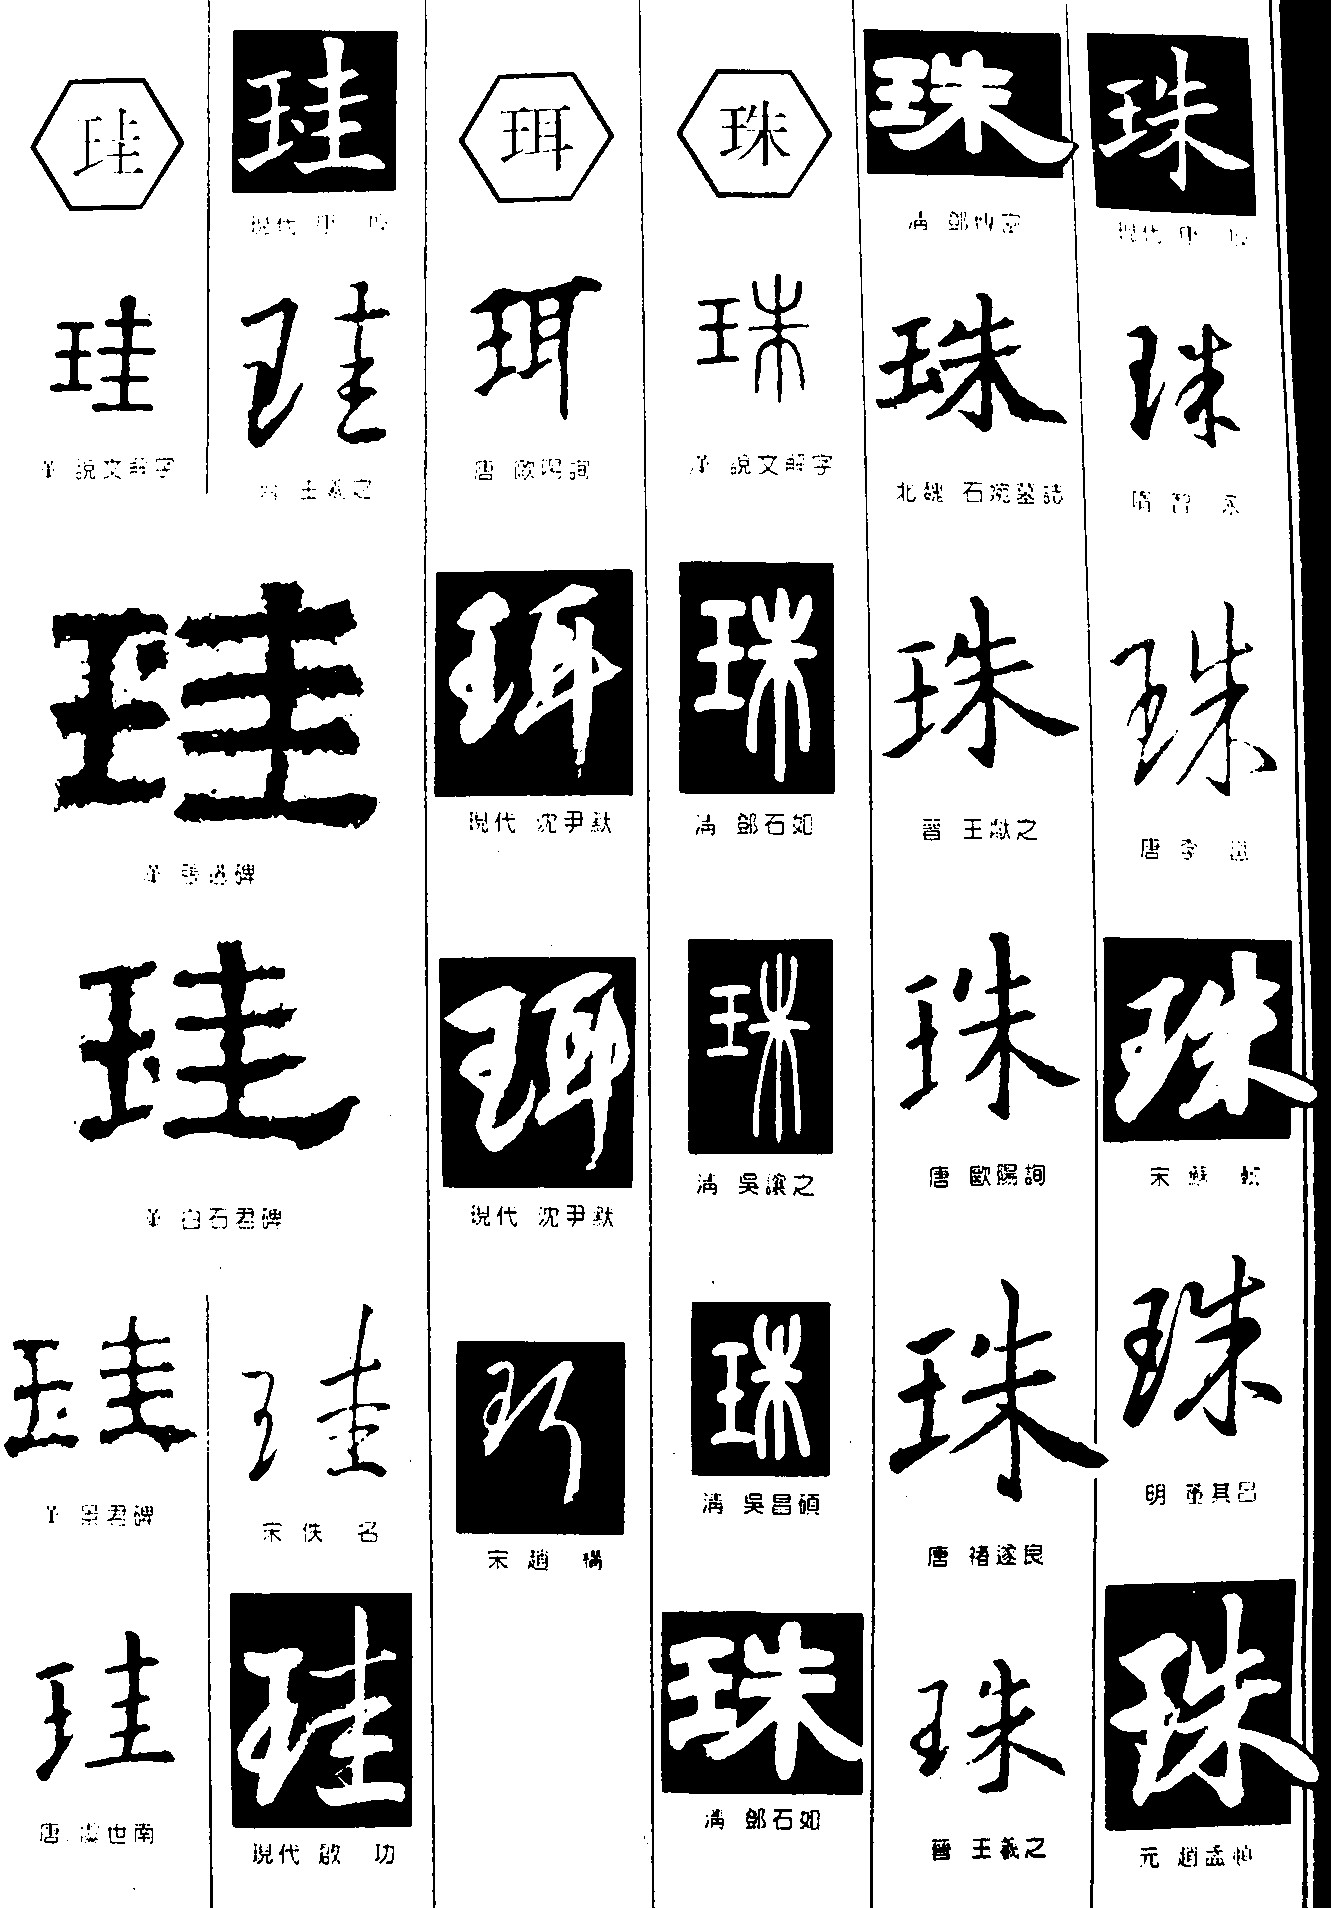 珪
珪
漢 說文解字
珪
漢
碑
珪
漢 白石君碑
珪
漢 景君碑
珪
唐 虞世南
珪
現代 康
珪
晉 王羲之
珪
宋 佚 名
珪
現代 啟 功
珥
珥
唐 歐陽詢
珥
現代 沈尹默
珥
現代 沈尹默
珥
宋 趙 構
珠
珠
漢 說文解字
珠
清 鄧石如
珠
清 吳讓之
珠
清 吳昌碩
珠
清 鄧石如
珠
清 鄧傳密
珠
北魏 石婉墓誌
珠
晉 王獻之
珠
唐 歐陽詢
珠
唐 褚遂良
珠
晉 王羲之
珠
現代 康
珠
隋 智 永
珠
唐 李 邕
珠
宋 蘇 軾
珠
明 董其昌
珠
元 趙孟頫